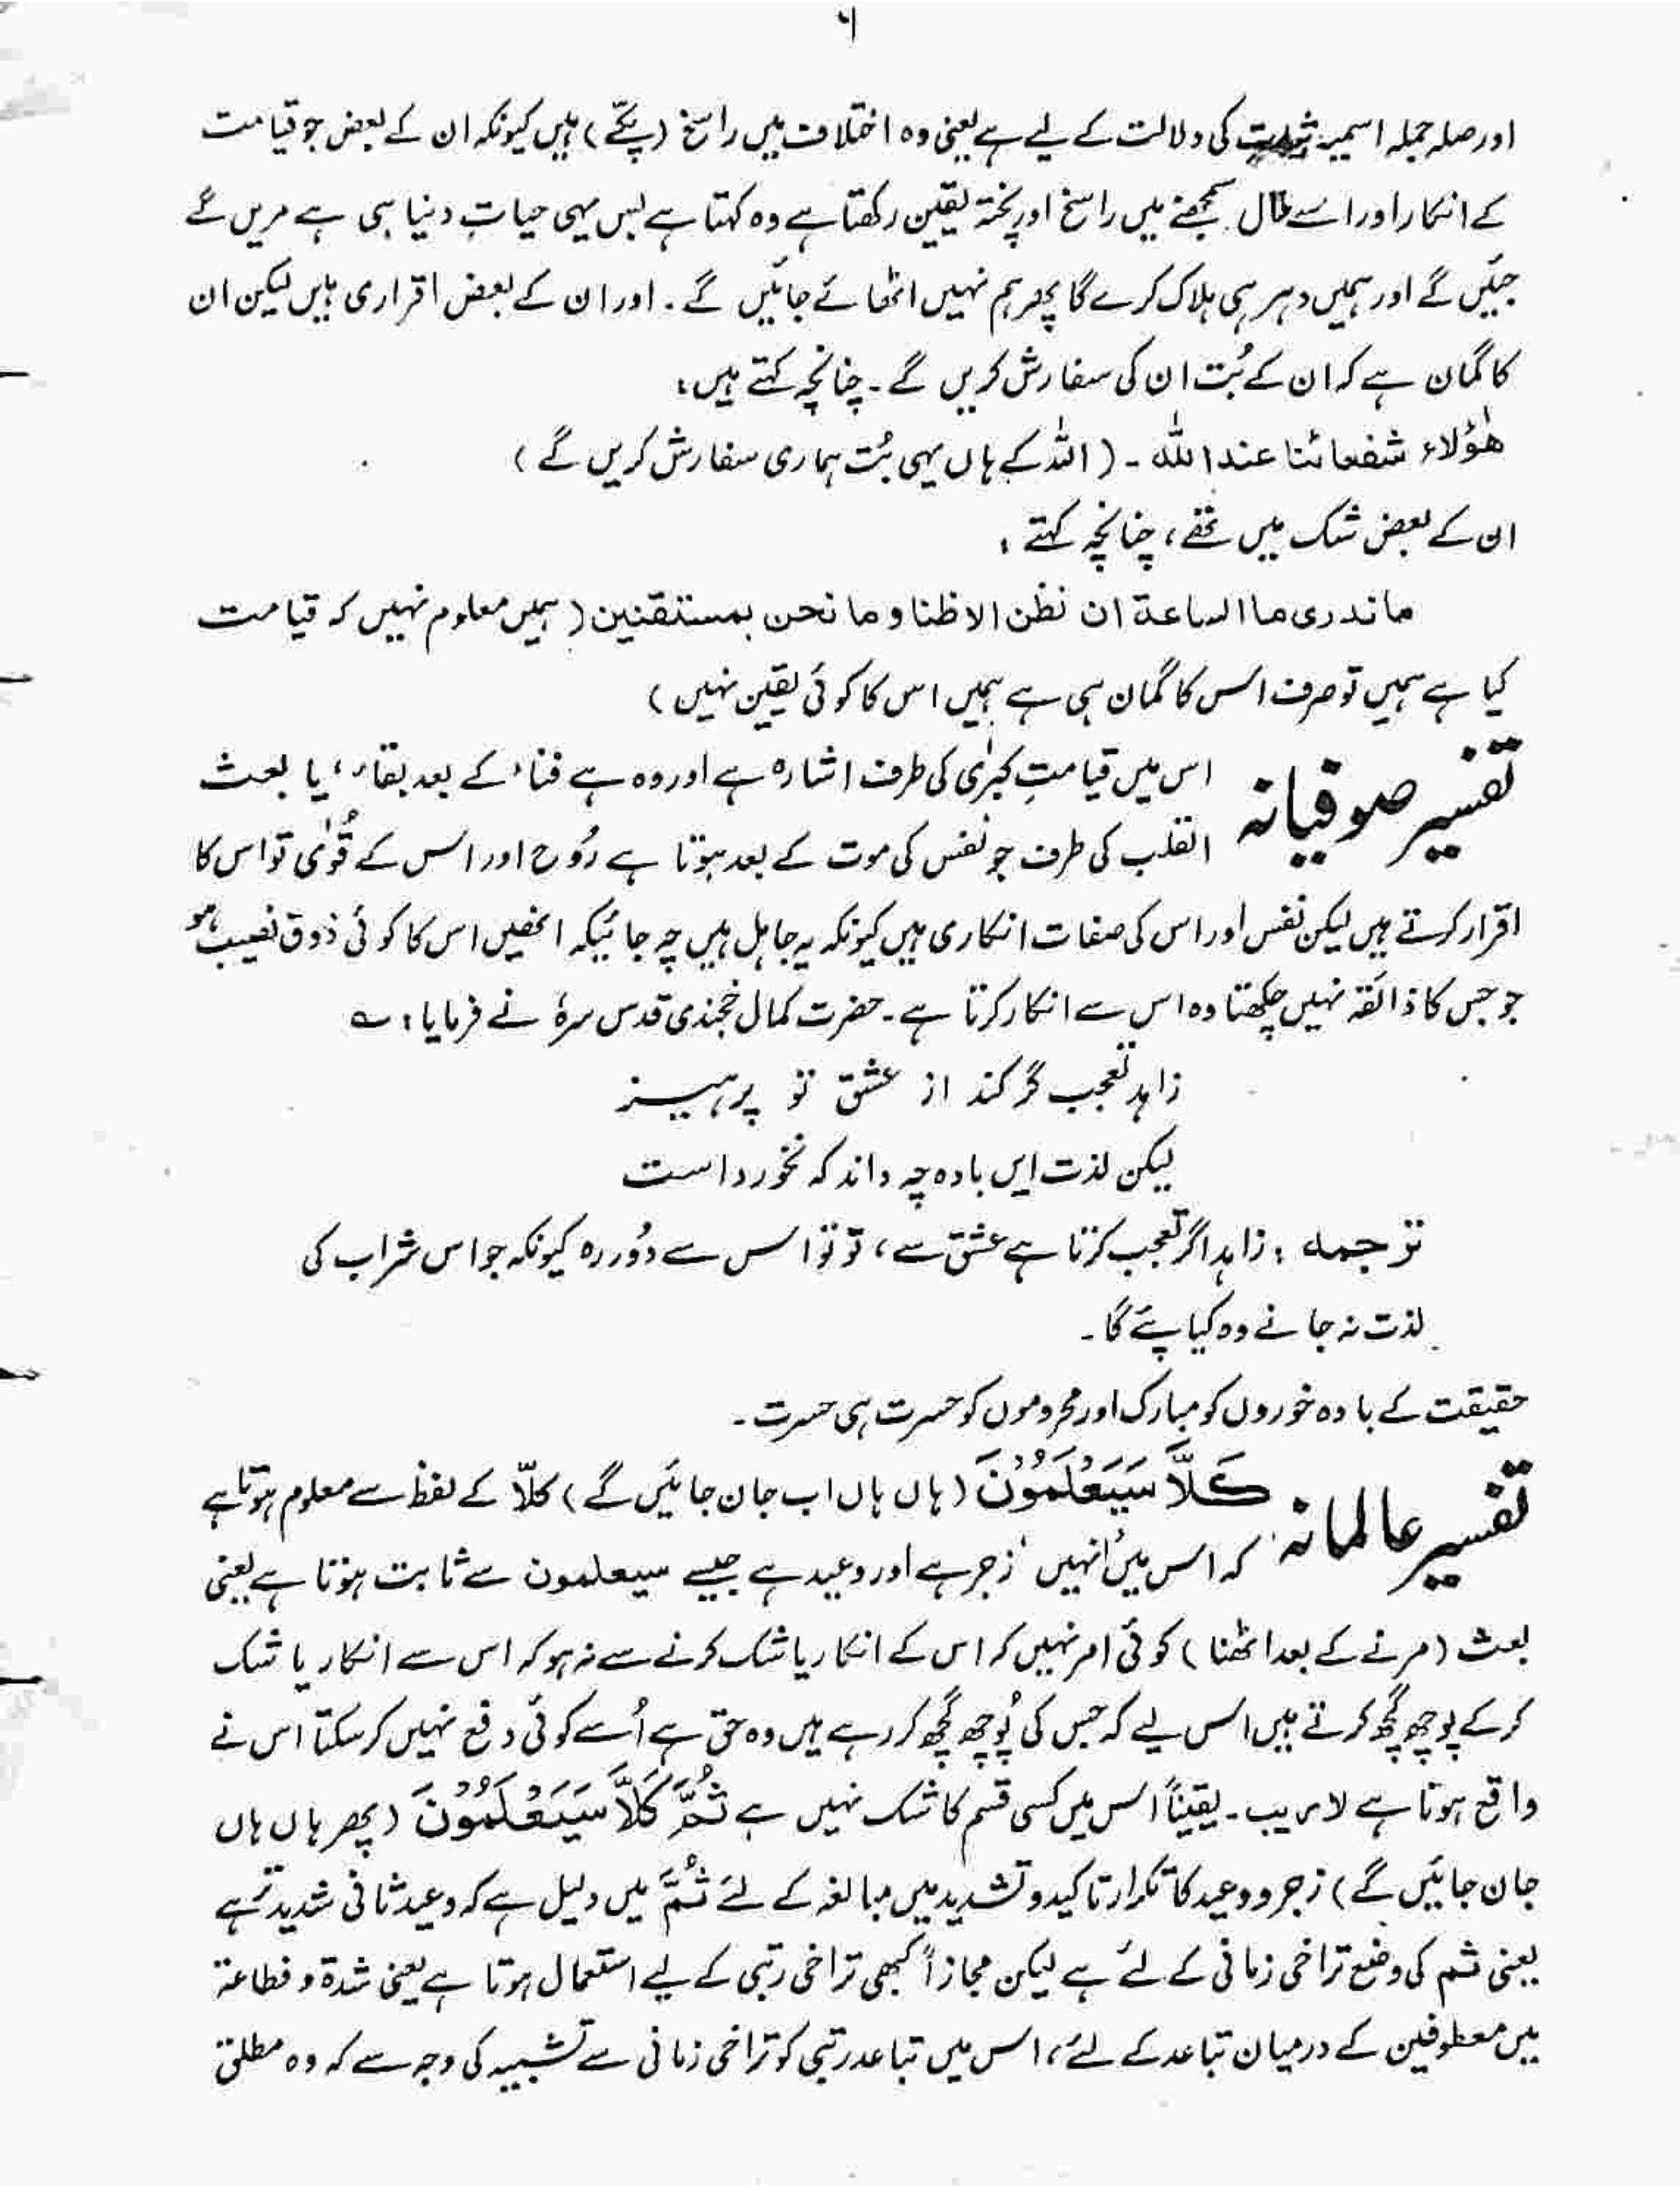 ۶
اور صلہ جملہ اسمیہ ثبوت کی دلالت کے لیے ہے یعنی وہ اختلاف میں راسخ (پکّے) ہیں کیونکہ ان کے بعض جو قیامت
کے انکار اور اسے محال سمجھنے میں راسخ اور پختہ یقین رکھتا ہے وہ کہتا ہے بس یہی حیاتِ دنیا ہی ہے مریں گے
جئیں گے اور ہمیں دہر ہی ہلاک کرے گا پھر ہم نہیں اٹھائے جائیں گے ۔ اور ان کے بعض اقراری ہیں لیکن ان
کا گمان ہے کہ ان کے بُت ان کی سفارش کریں گے ۔ چنانچہ کہتے ہیں :
هٰؤلاء شفعائنا عند اللّٰه ۔ (اللہ کے ہاں یہی بُت ہماری سفارش کریں گے)
ان کے بعض شک میں تھے ، چنانچہ کہتے :
ما ندری ما الساعة ان نظن الا ظنا و ما نحن بمستقنین (ہمیں معلوم نہیں کہ قیامت
کیا ہے ہمیں تو صرف اس کا گمان ہی ہے ہمیں اس کا کوئی یقین نہیں)
تفسیر صوفیانہ اس میں قیامتِ کبرٰی کی طرف اشارہ ہے اور وہ ہے فناء کے بعد بقاء ، یا بعث
القلب کی طرف جو نفس کی موت کے بعد ہوتا ہے رُوح اور اس کے قُوٰی تو اس کا
اقرار کرتے ہیں لیکن نفس اور اس کی صفات انکاری ہیں کیونکہ یہ جاہل ہیں چہ جائیکہ انھیں اس کا کوئی ذوق نصیب ہو
جو جس کا ذائقہ نہیں چکھتا وہ اس سے انکار کرتا ہے ۔ حضرت کمال خجندی قدس سرہٗ نے فرمایا : ؎
زاہد تعجب گر کند از عشق تو پرہیز
لیکن لذت ایں بادہ چہ داند کہ نخورد است
ترجمہ : زاہد اگر تعجب کرتا ہے عشق سے ، تو تو اس سے دُور رہ کیونکہ جو اس شراب کی
لذت نہ جانے وہ کیا پئے گا ۔
حقیقت کے بادہ خوروں کو مبارک اور محروموں کو حسرت ہی حسرت ۔
تفسیر عالمانہ كَلَّا سَيَعْلَمُوْنَ (ہاں ہاں اب جان جائیں گے) کلّا کے لفظ سے معلوم ہوتا ہے
کہ اس میں انہیں زجر ہے اور وعید ہے جیسے سیعلمون سے ثابت ہوتا ہے یعنی
بعث (مرنے کے بعد اٹھنا) کوئی امر نہیں کہ اس کے انکار یا شک کرنے سے نہ ہو کہ اس سے انکار یا شک
کر کے پوچھ گچھ کرتے ہیں اس لیے کہ جس کی پُوچھ گچھ کر رہے ہیں وہ حق ہے اُسے کوئی دفع نہیں کر سکتا اس نے
واقع ہوتا ہے لاریب ۔ یقیناً اس میں کسی قسم کا شک نہیں ہے ثُمَّ كَلَّا سَيَعْلَمُوْنَ (پھر ہاں ہاں
جان جائیں گے) زجر و وعید کا تکرار تاکید و تشدید میں مبالغہ کے لئے ثُمَّ میں دلیل ہے کہ وعید ثانی شدید تر ہے
یعنی ثم کی وضع تراخی زمانی کے لئے ہے لیکن مجازاً کبھی تراخی رتبی کے لیے استعمال ہوتا ہے یعنی شدة و فظاعة
میں معطوفین کے درمیان تباعد کے لئے ، اس میں تباعد رتبی کو تراخی زمانی سے تشبیہ کی وجہ سے کہ وہ مطلق